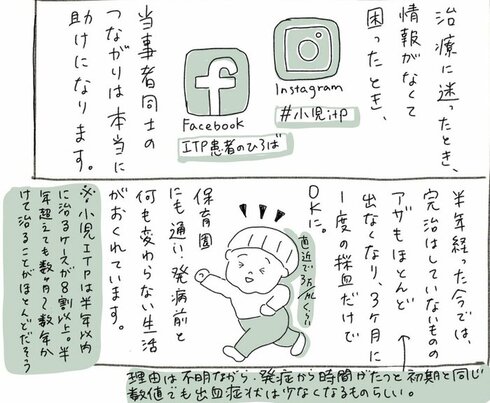 治療に迷ったとき、
情報がなくて
困ったとき、
Instagram
#小児itp
Facebook
ITP患者のひろば
当事者同士の
つながりは本当に
助けになります。
半年経った今では、
完治はしていないものの
アザもほとんど
出なくなり、3ヶ月に
1度の採血だけで
OKに。
直近で3万/μLくらい
保育園
にも通い、発病前と
何も変わらない生活
がおくれています。
※小児ITPは半年以内
に治るケースが8割以上。半
年超えても数ヶ月〜数年か
けて治ることがほとんどだそう
理由は不明ながら、発症から時間がたつと初期と同じ
数値でも出血症状は少なくなるものらしい。